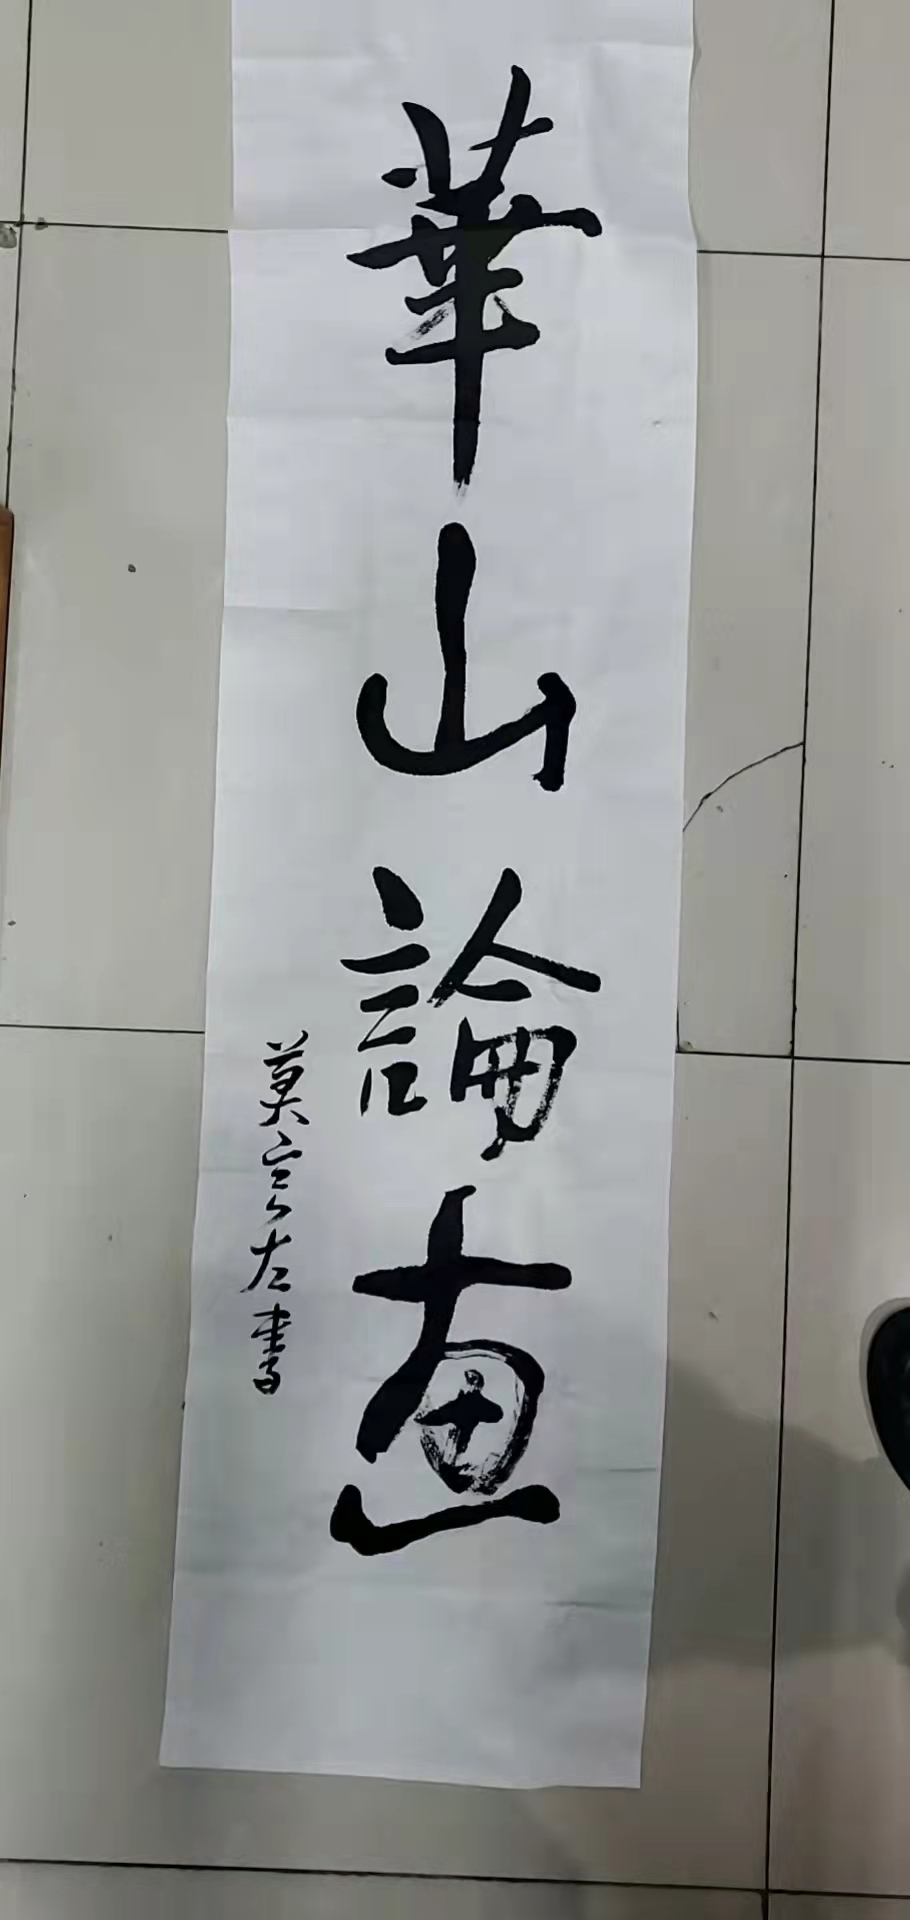 華山論画
莫言左書